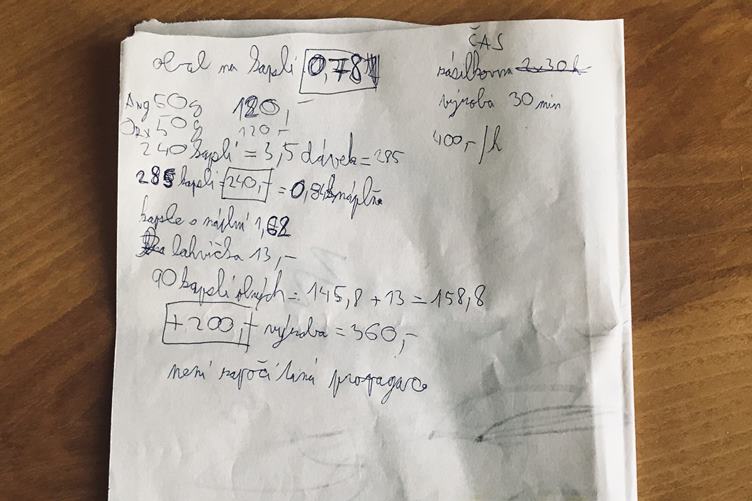 obal na kapsli 0,78
Ang 50g 120,-
50g 120,-
240 kapslí = 3,5 dávek = 285
285 kapslí = 240,- = 0,84 náplň
kapsle s náplní 1,62
lahvička 13,-
90 kapslí = 145,8 + 13 = 158,8
+ 200,- výroba = 360,-
není započítaná propagace
ČAS
zásilkovna 2x30
výroba 30 min
400,-/h